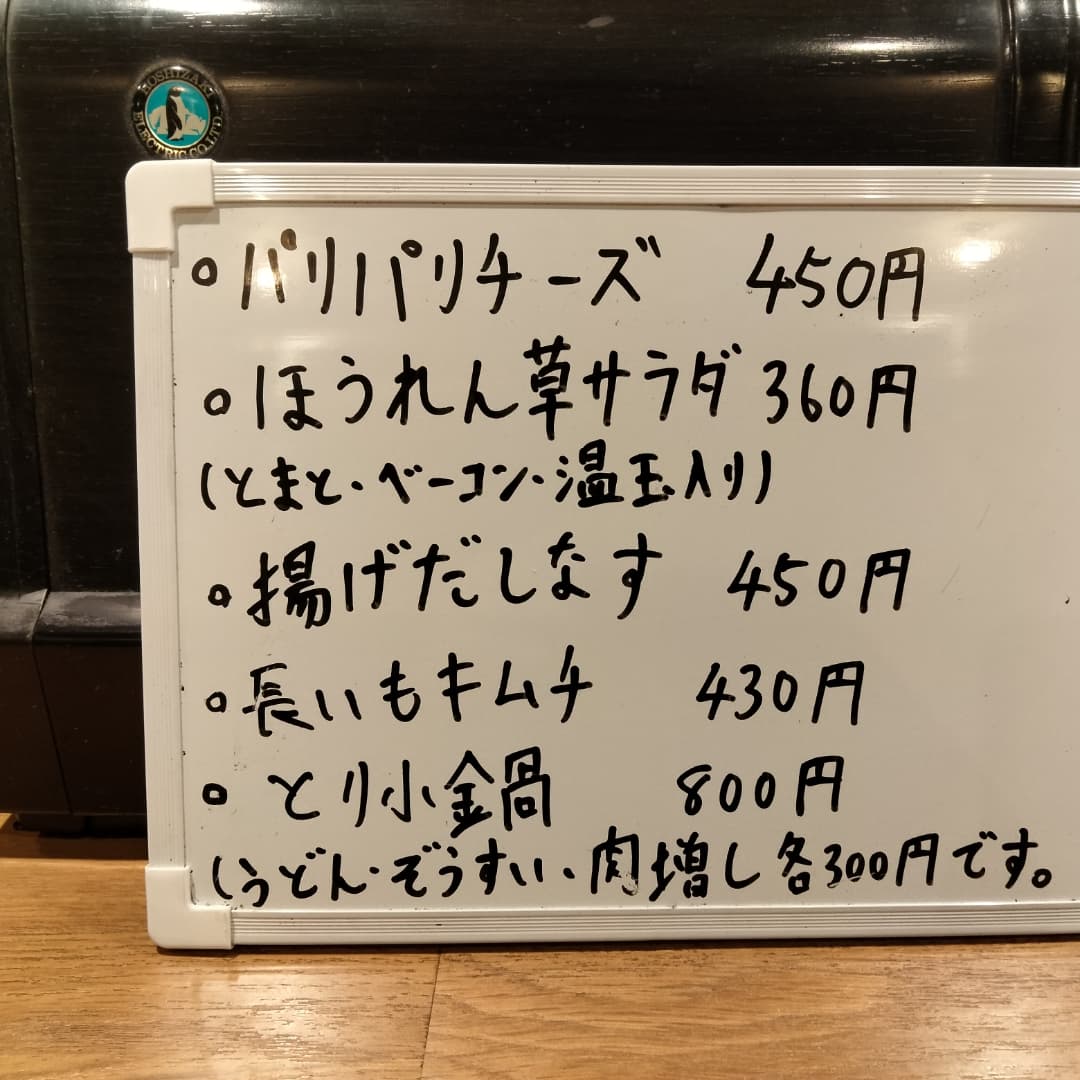 HOSHIZAKI ELECTRIC CO.,LTD.
○パリパリチーズ 450円
○ほうれん草サラダ 360円
(とまと・ベーコン・温玉入り)
○揚げだしなす 450円
○長いもキムチ 430円
○とり小鍋 800円
(うどん・ぞうすい、肉増し各300円です。